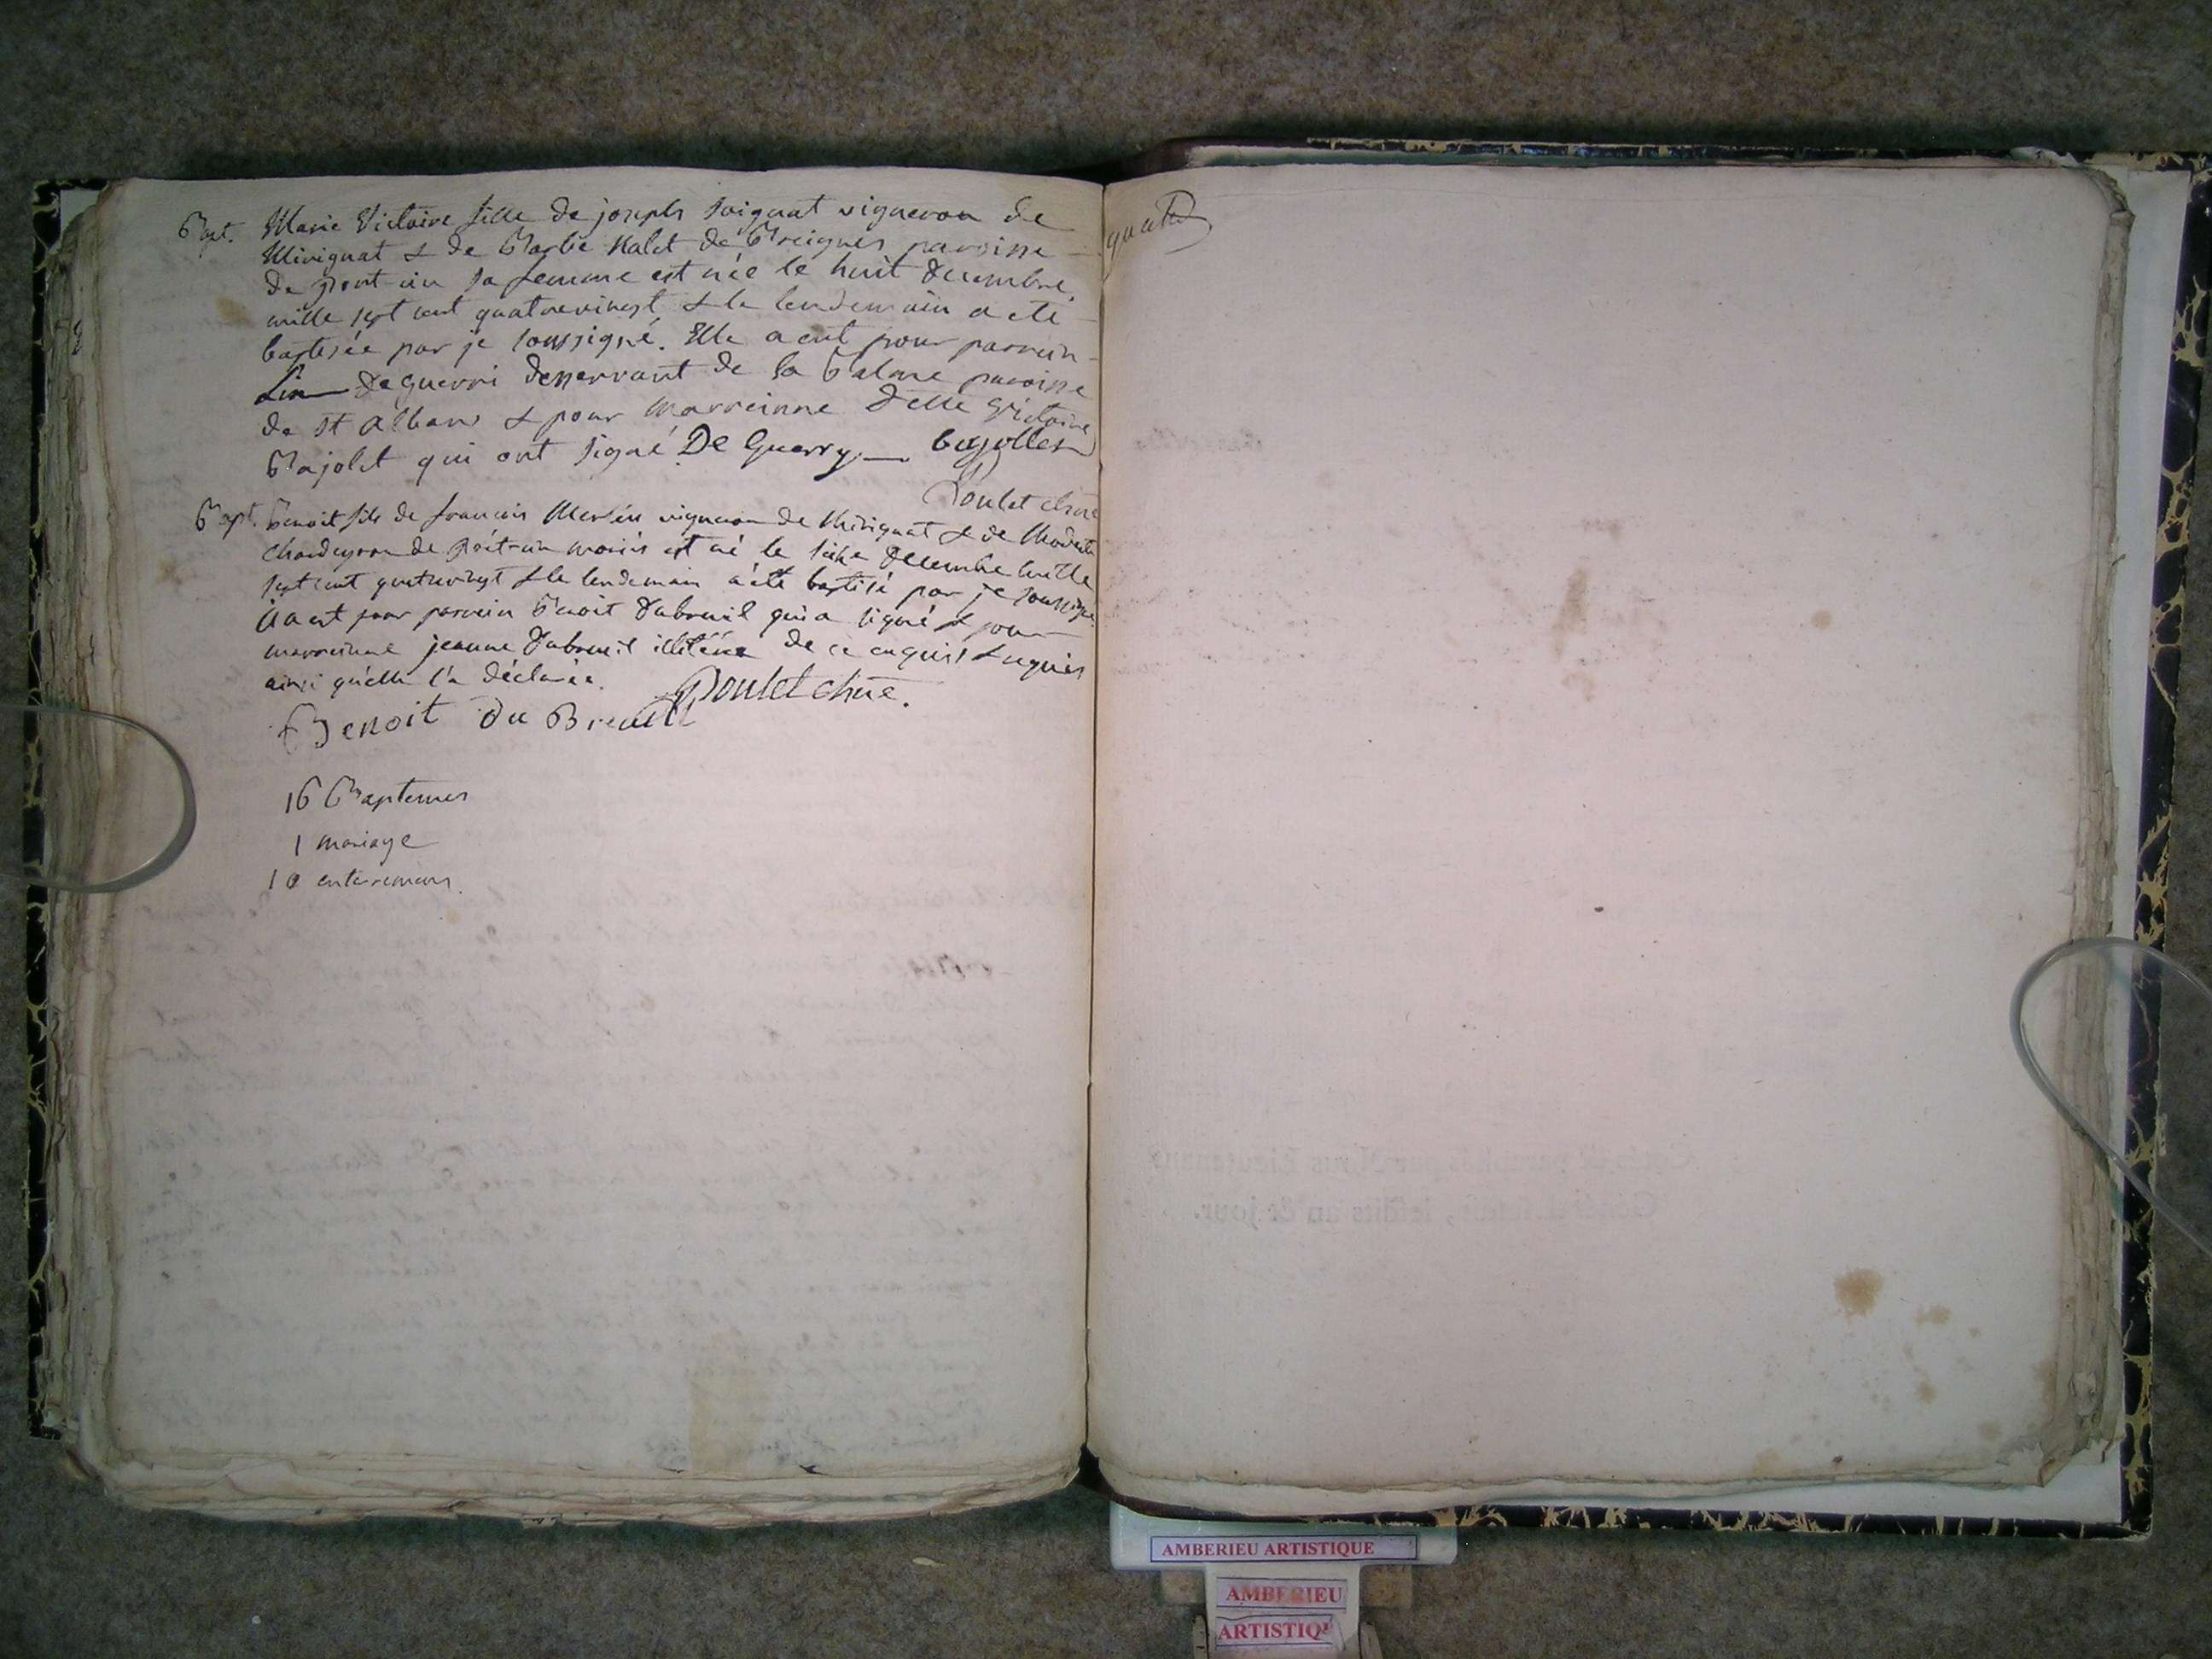 Bapt. Marie Victoire fille de joseph Soignat vigneron de
Mirignat & de Marie Nalet de Breignes paroisse
de pont-ain sa femme est née le huit decembre
mille sept cent quatrevingt & le lendemain a eté
baptisée par je soussigné. Elle a eut pour parrein
De guerri desservant de la Balme paroisse
de st alban & pour marreinne delle Victoire
Bajolet qui ont signé De Guerry
Poulet
Bapt. Benoit fils de francois Merlin vigneron de Mirignat & de
de pont-ain mariés est né le decembre mille
sept cent quatrevingt & le lendemain a été baptisé par je soussigné
il a eut pour parrein Benoit Dubreuil qui a signé & pour
marreinne jeanne Dubreuil illitérée de ce enquise & requise
ainsi qu'elle l'a déclarée. Poulet
Benoit Du Breuill
16 Baptemes
1 mariage
10 enterremens
AMBERIEU ARTISTIQUE
AMBERIEU
ARTISTIQU